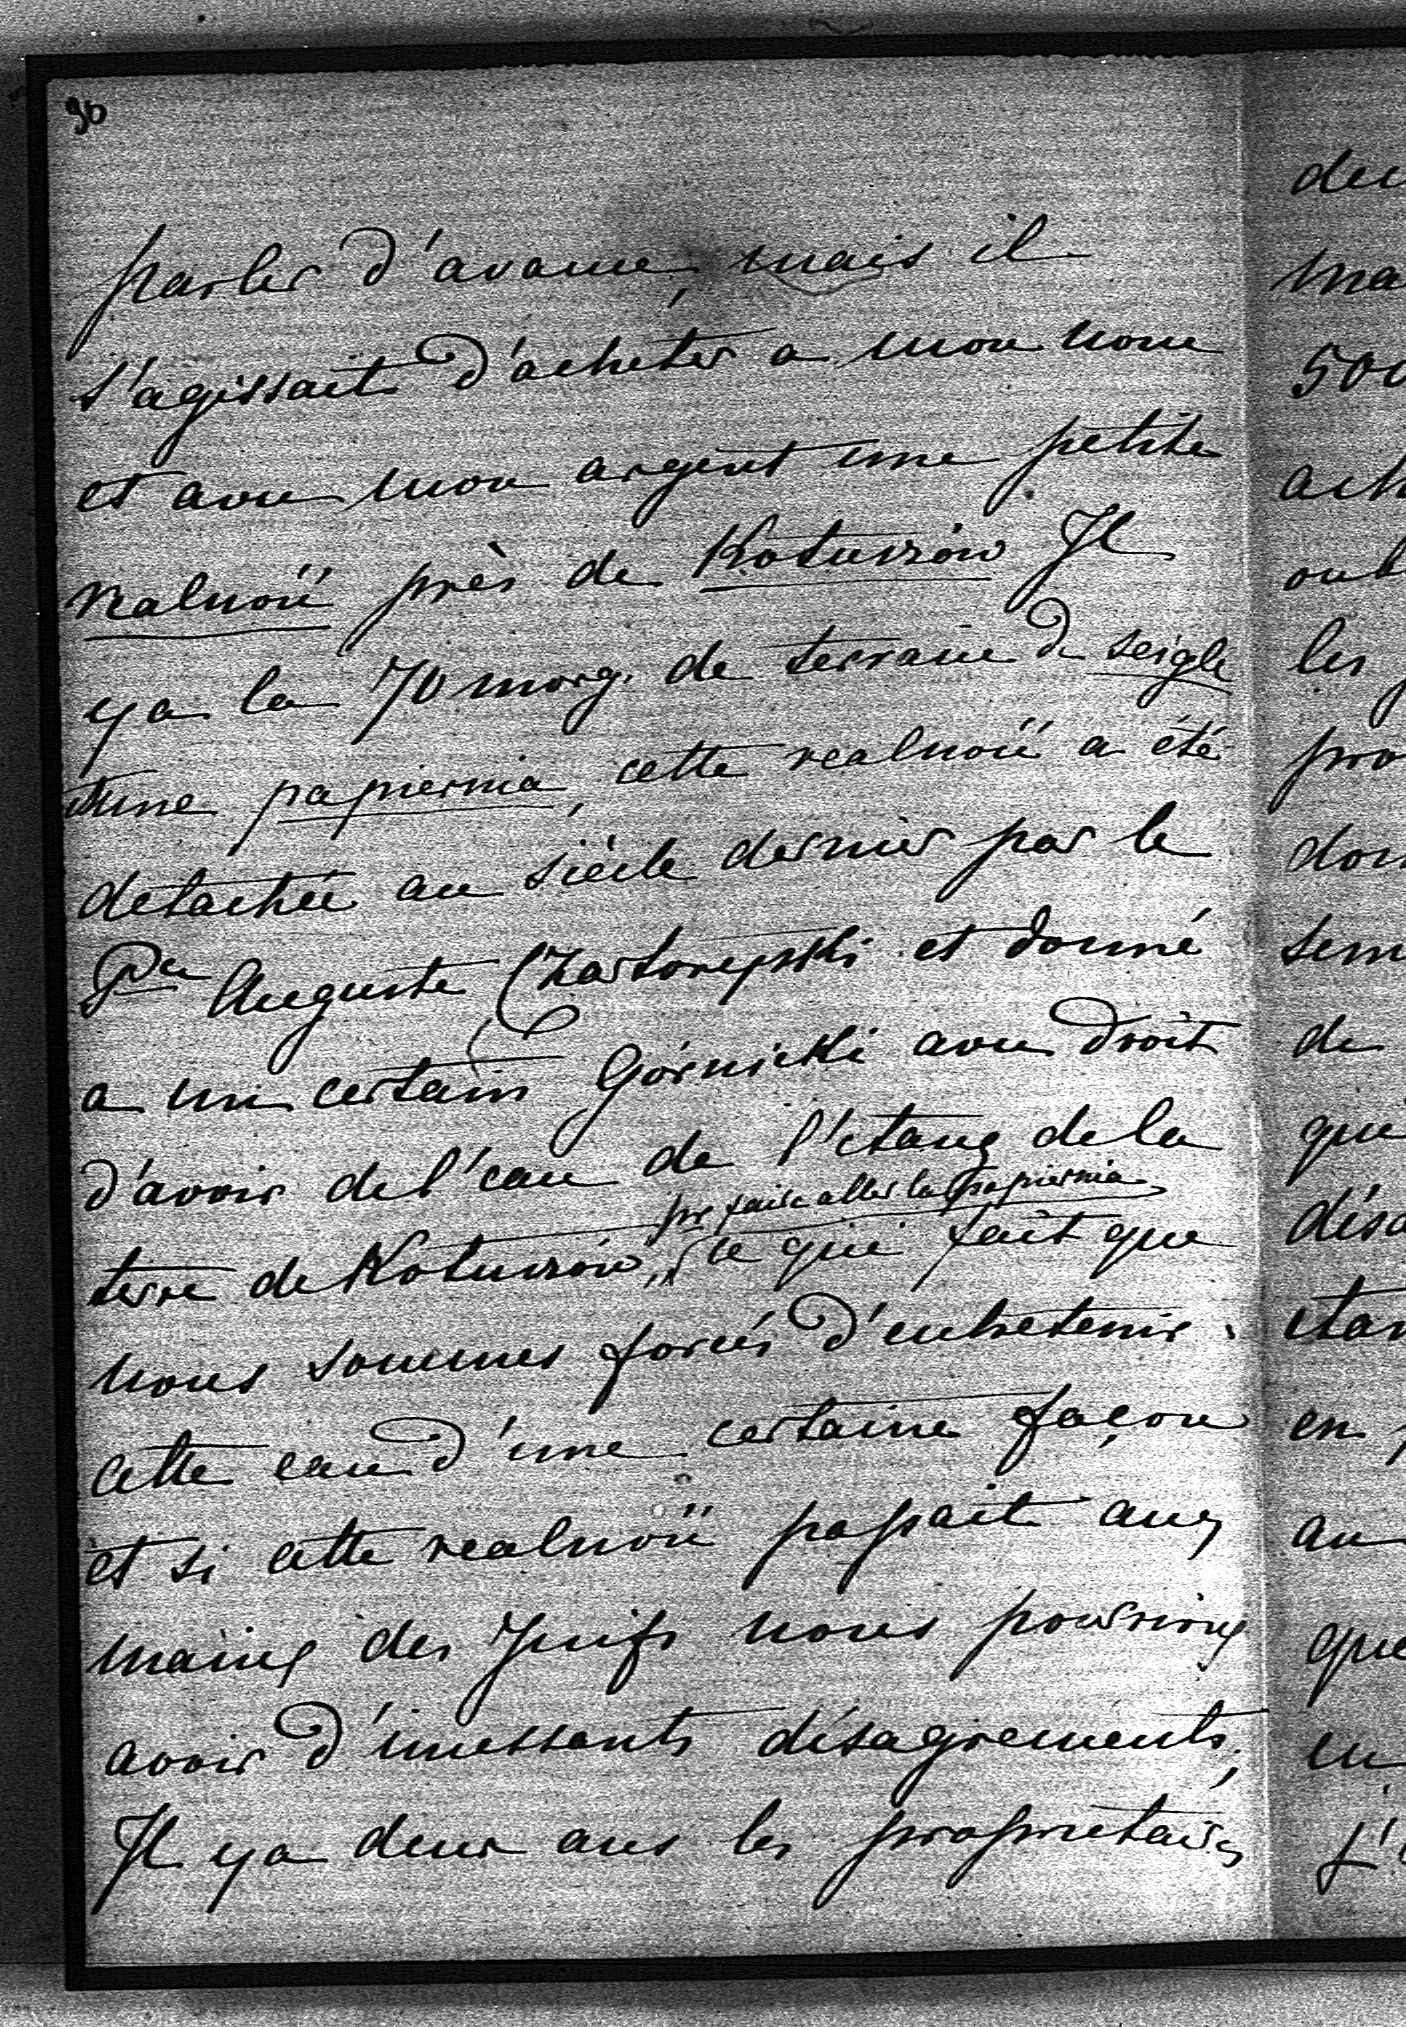 96
parler d'avance, mais il
s'agissait d'acheter a mon nom
et avec mon argent une petite
realność près de Kotuszów Il
y a la 70 morg. de terrain de seigle
et une papiernia, cette realność a été
detachée au siècle dernier par le
Pce Auguste Czartoryski et donné
a un certain Górnicki avec droit
d'avoir de l'eau de l'etang de la
pr faire aller la papiernia
terre de Kotuszów, ce qui fait que
nous sommes forcés d'entretenir
cette eau d'une certaine façon
et si cette realność passait aux
mains des Juifs nous pourrions
avoir d'incessants désagrements,
Il y a deux ans les proprietaires
ma
500
ach
oub
les
pro
don
sem
de
qui
désa
etan
en p
au
que
en